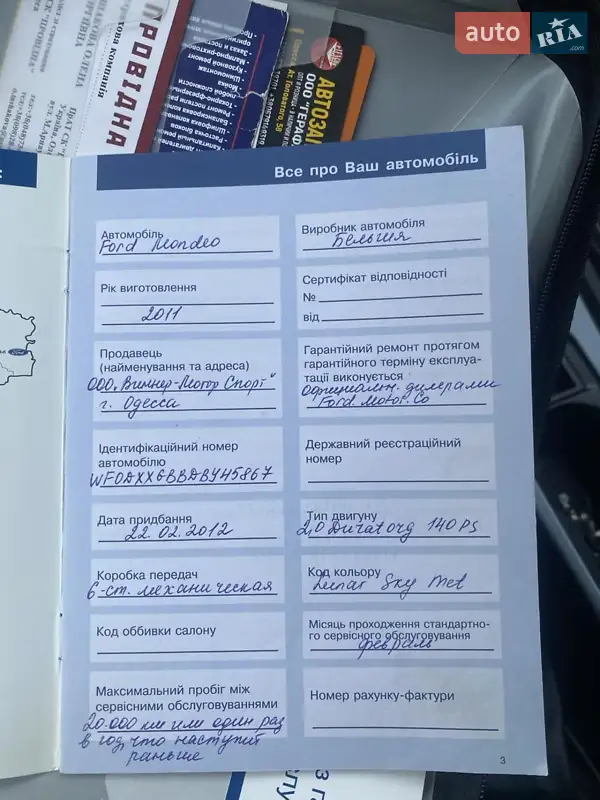 auto RIA .com
ПРОВІДНА
хова компанія
АВТОЗАП
ООО "ГЕРАФ
Мойка
Шиномонтаж
Все про Ваш автомобіль
Автомобіль
Ford Mondeo
Рік виготовлення
2011
Продавець
(найменування та адреса)
ООО „Виннер-Мотор Спорт"
г. Одесса
Ідентифікаційний номер
автомобілю
WF0DXXGBBDBY45867
Дата придбання
22.02.2012
Коробка передач
6-ст. механическая
Код оббивки салону
Максимальний пробіг між
сервісними обслуговуваннями
20.000 км или один раз
в год, что наступит
раньше
Виробник автомобіля
Бельгия
Сертифікат відповідності
№
від
Гарантійний ремонт протягом
гарантійного терміну експлуа-
тації виконується
официальн. дилерами
Ford. Motor. Co
Державний реєстраційний
номер
Тип двигуну
2,0 Duratorg 140 PS
Код кольору
Lunar Sky Met
Місяць проходження стандартно-
го сервісного обслуговування
февраль
Номер рахунку-фактури
3